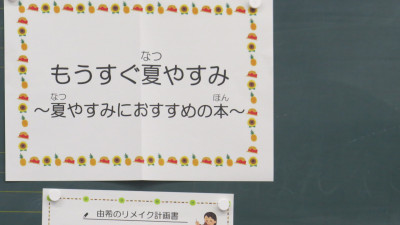 もうすぐ夏やすみ
なつ
～夏やすみにおすすめの本～
なつ ほん
由希のリメイク計画書